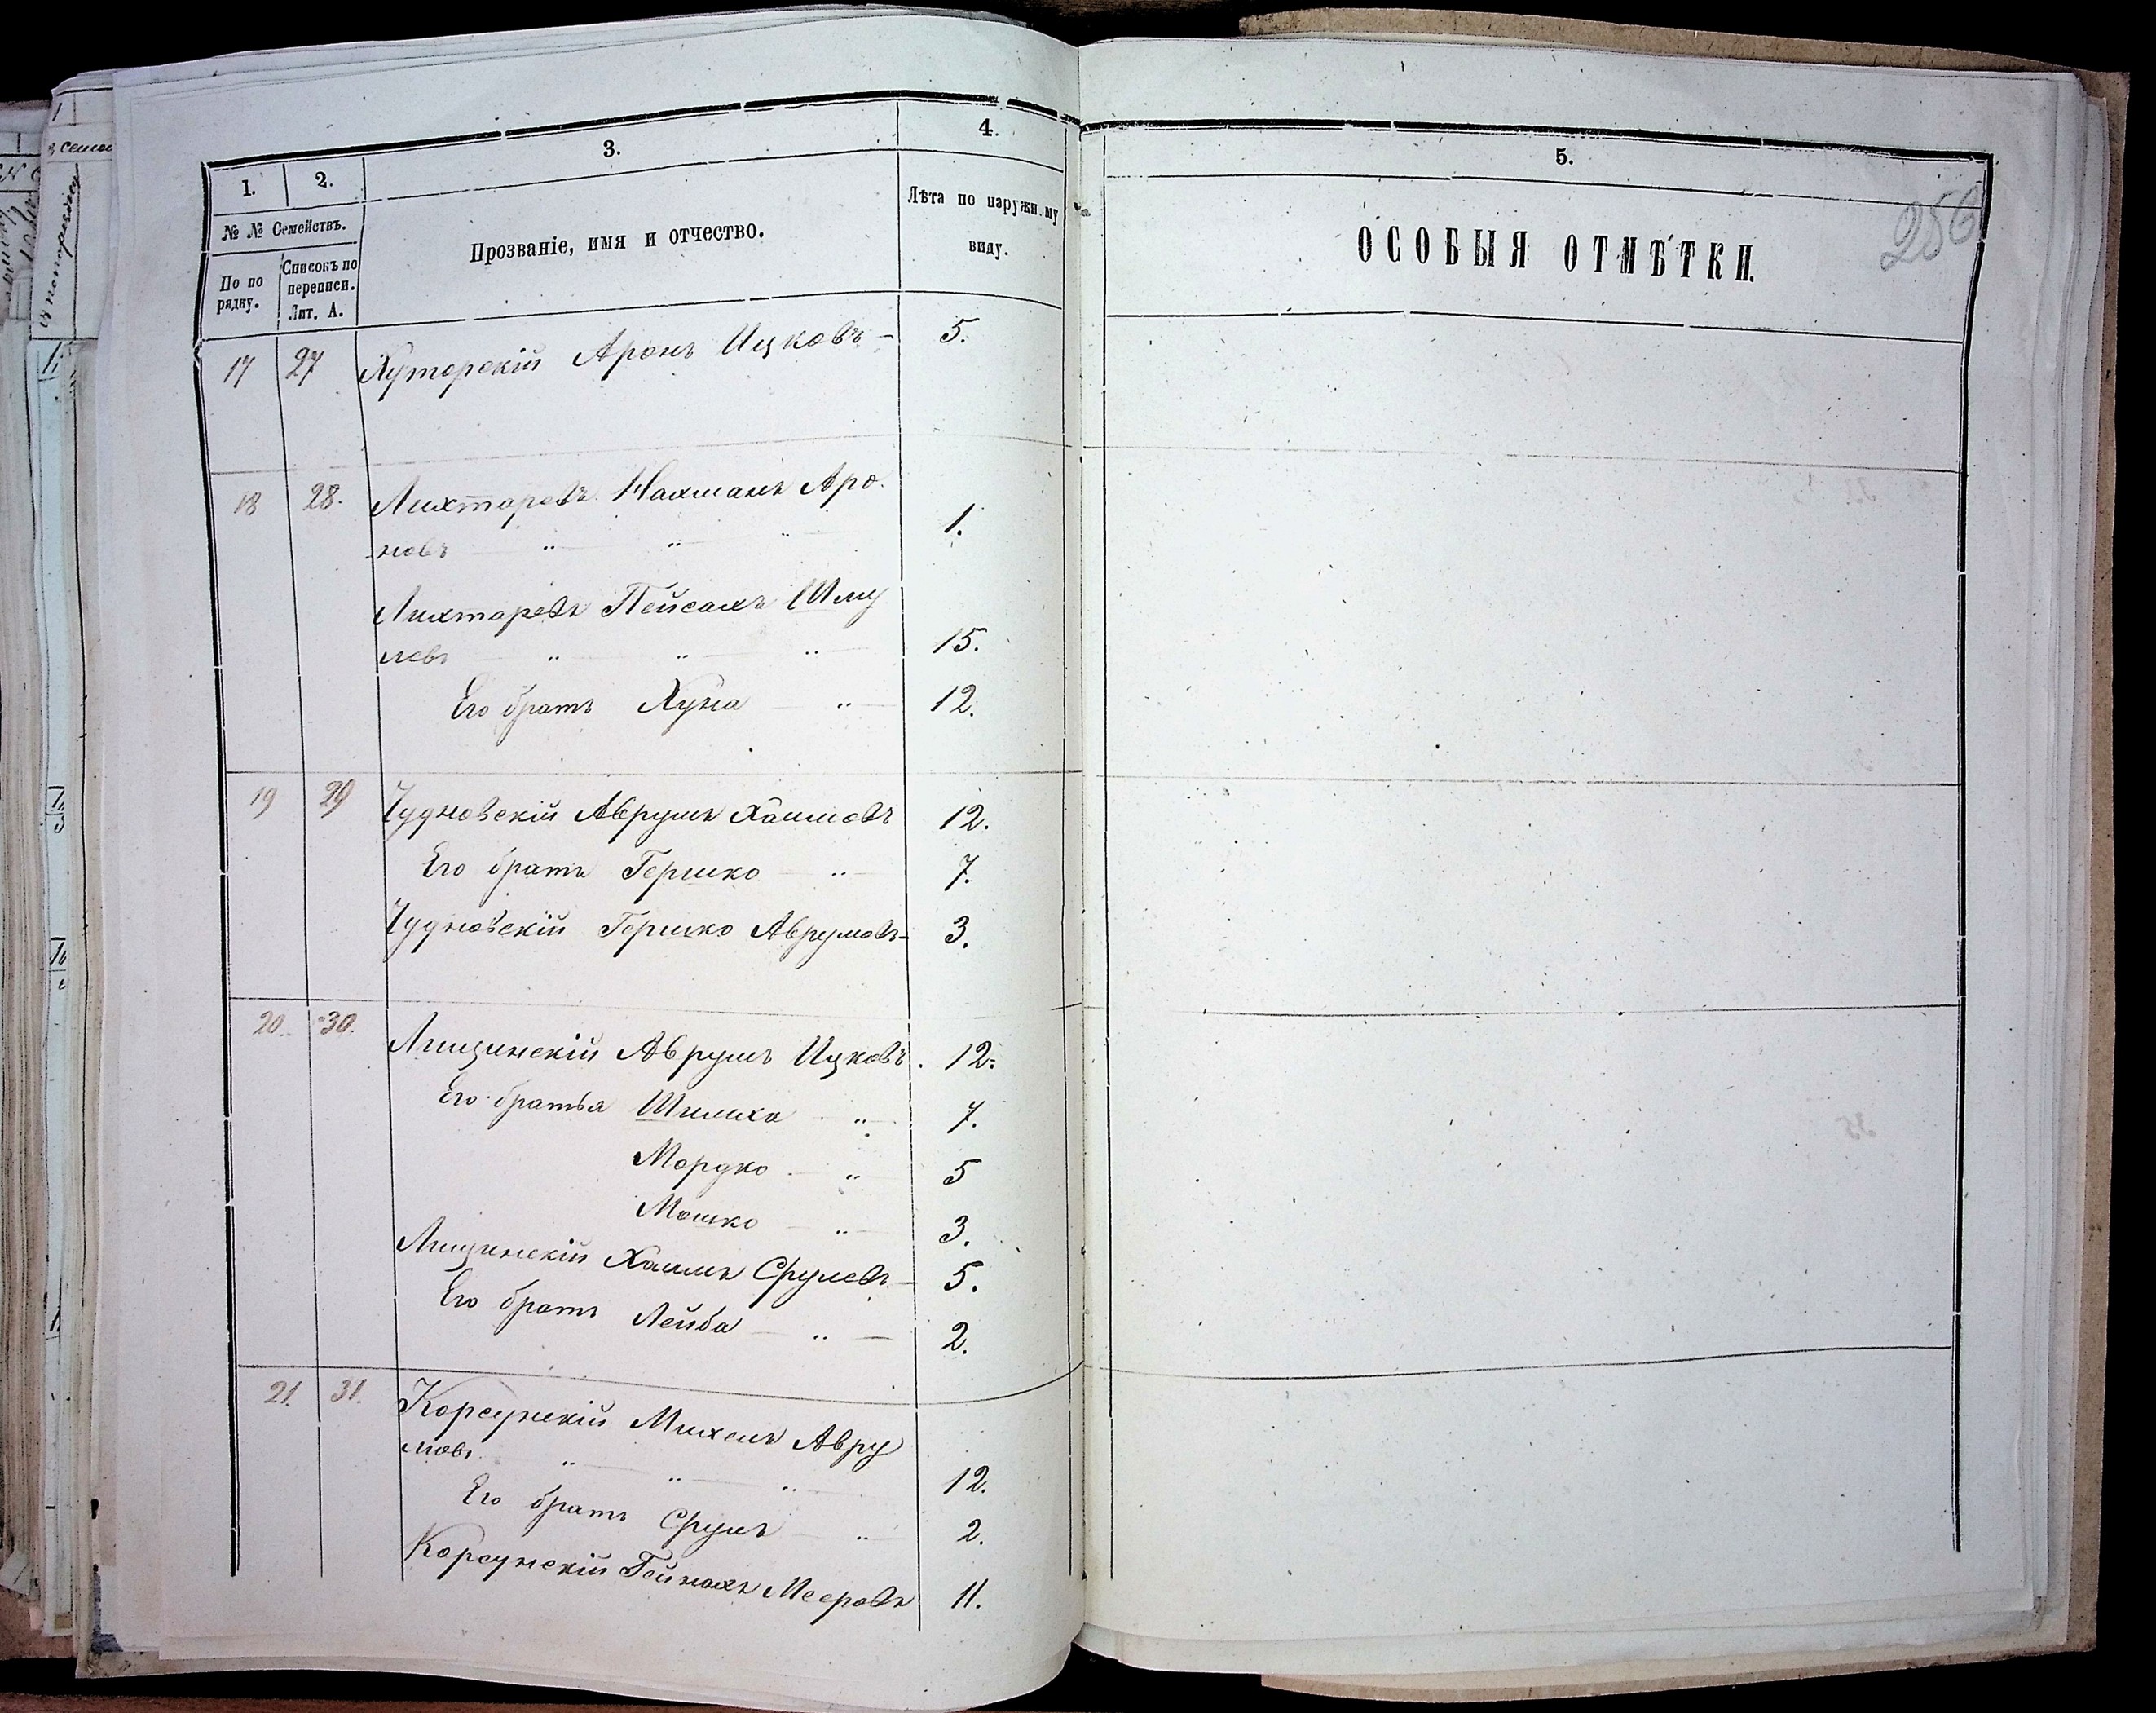 1. 2. 3. 4.
№ № Семействъ. Прозваніе, имя и отчество. Лѣта по наружн.му
виду.
По по
рядку.
Списокъ по
переписи.
Лит. А.
17 27 Хуторскій Аронъ Ицковъ - 5.
18 28. Лихтаревъ Нахманъ Аро
новъ 1.
Лихтаревъ Пейсахъ Шму
левъ 15.
Его братъ Хуна 12.
19 29 Чудновскій Аврумъ Хаимовъ 12.
Его братъ Гершко 7.
Чудновскій Гершко Аврумовъ 3.
20. 30. Лищинскій Аврумъ Ицковъ. 12.
Его братья 7.
Мордко 5
Мошко 3.
Лищинскій Хаимъ Срулевъ 5.
Его братъ Лейба 2.
21. 31. Корсунскій Михель Авру
мовъ 12.
Его братъ Сруль 2.
Корсунскій Гейнахъ Мееровъ 11.
5.
ОСОБЫЯ ОТМѢТКИ.
256